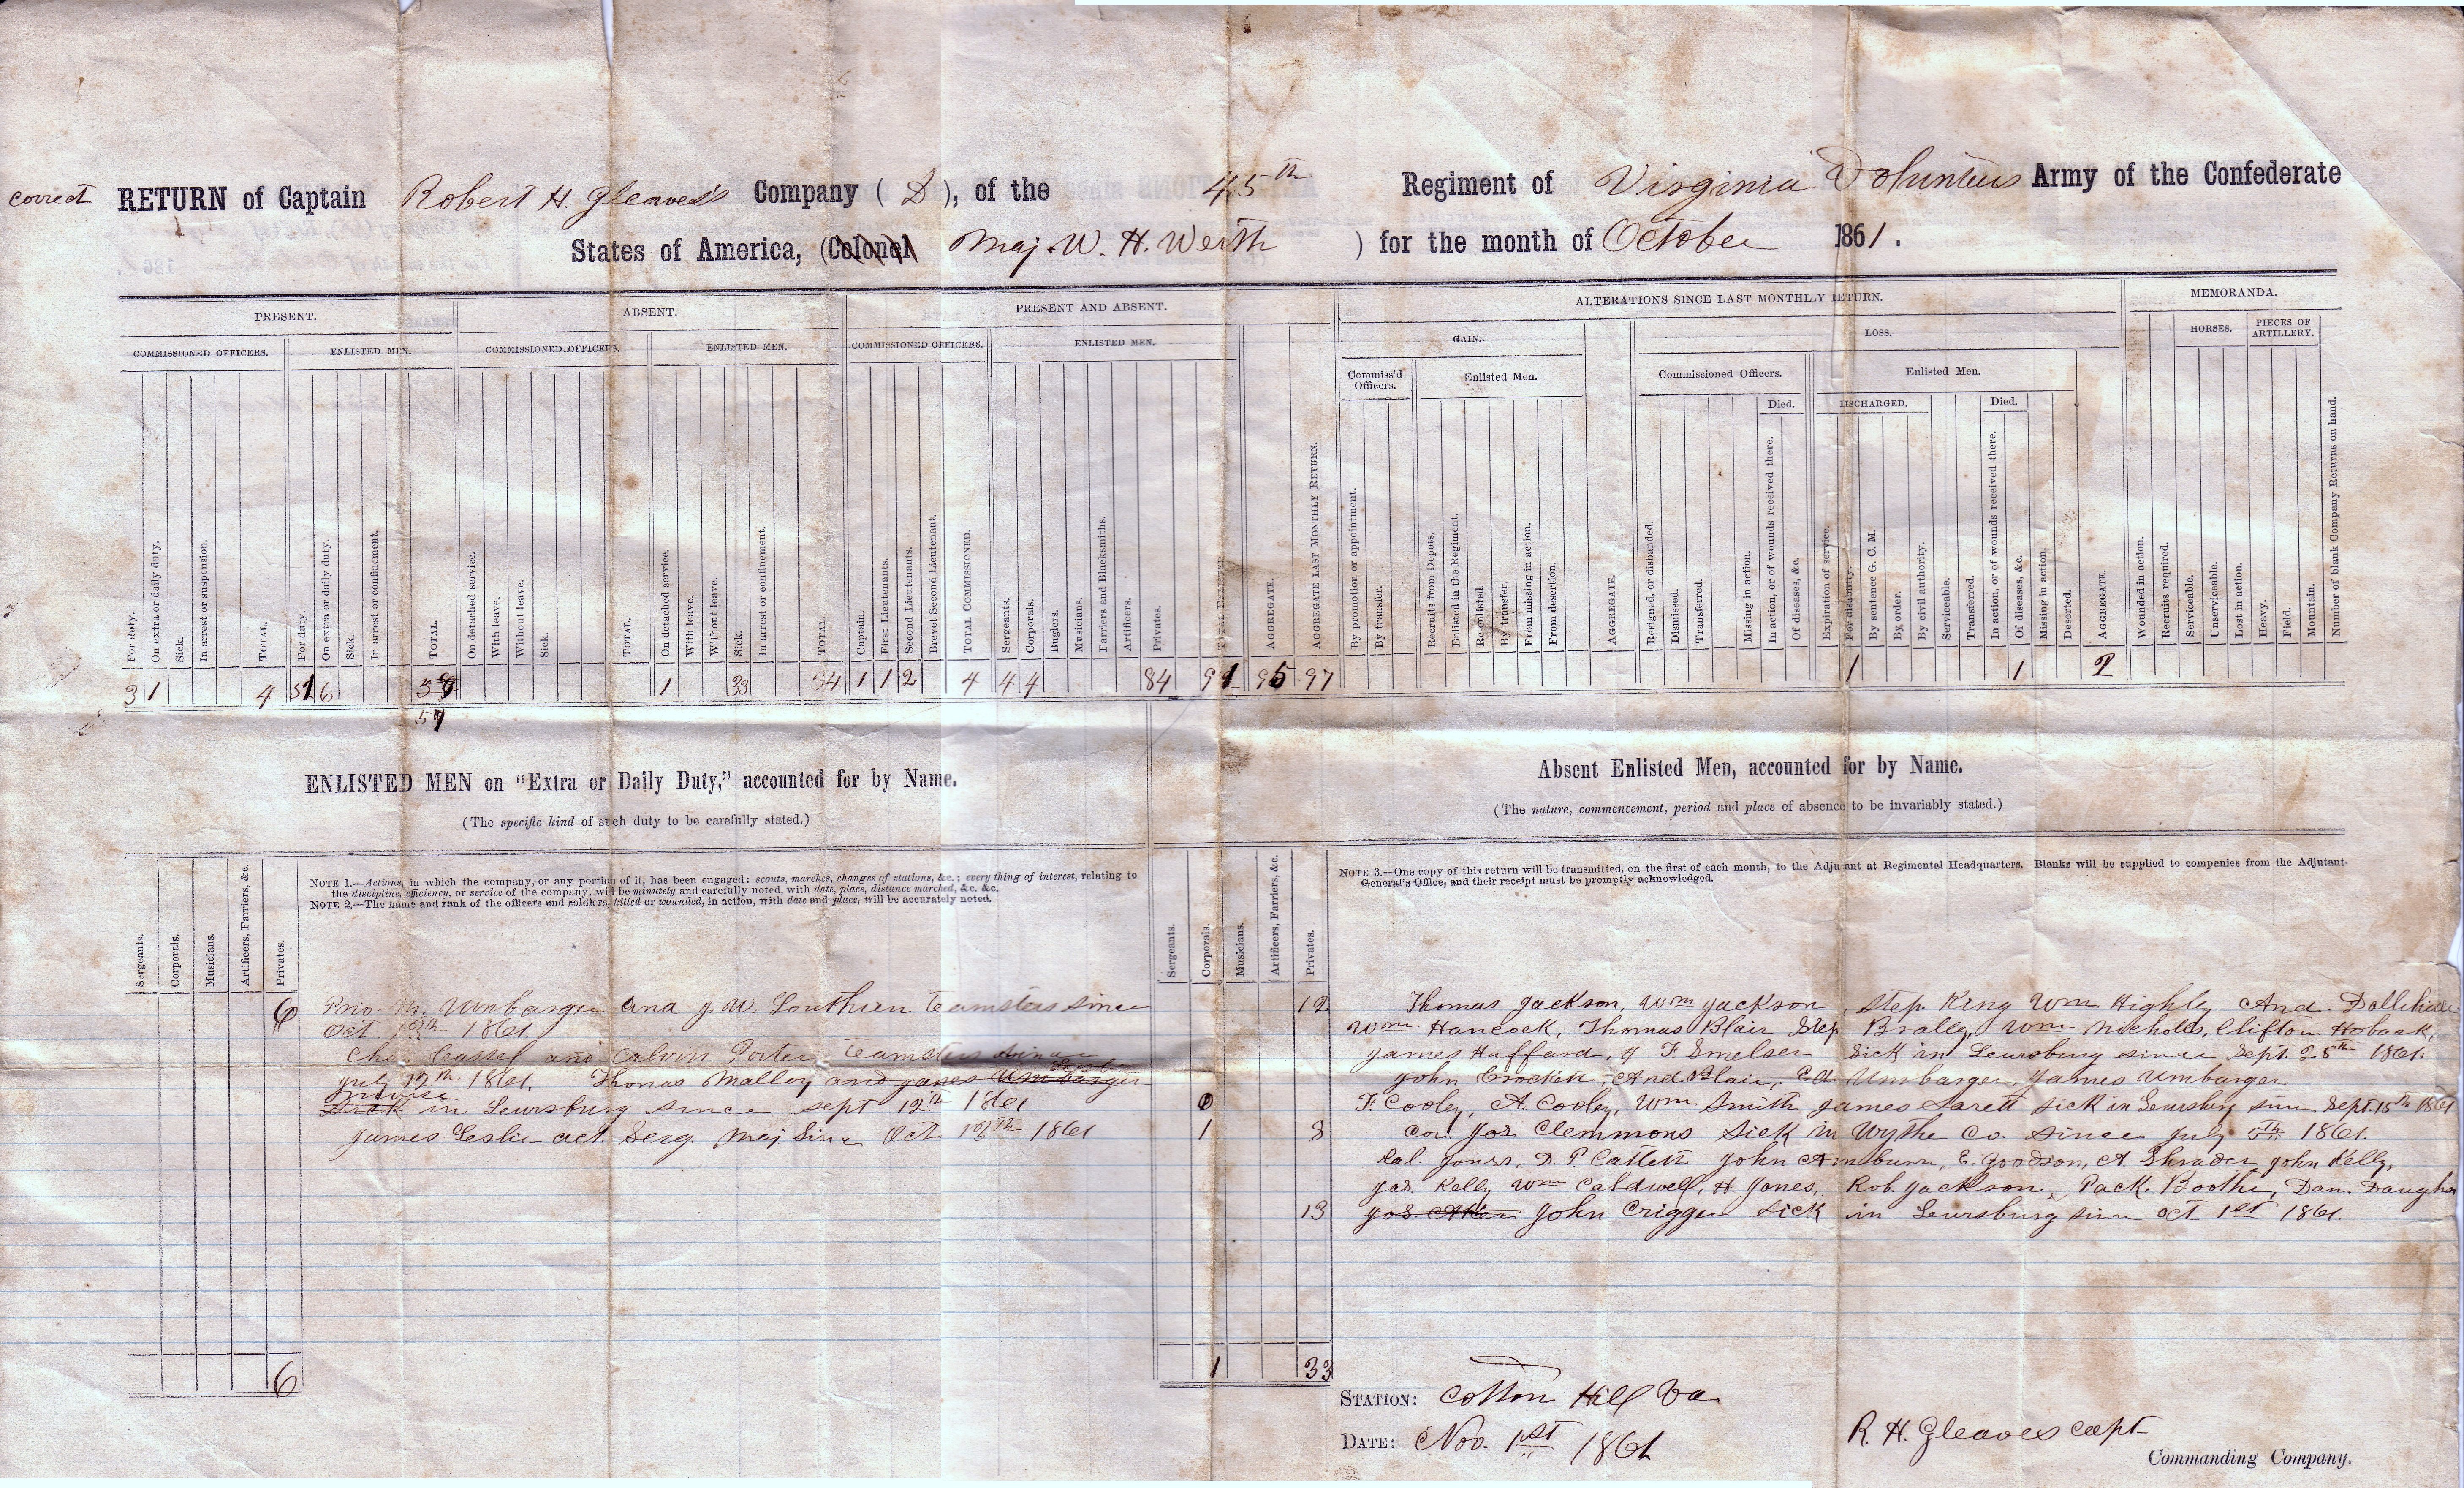 correct RETURN of Captain Robert H. Gleaves's Company ( D ), of the 45th Regiment of Virginia Volunteers Army of the Confederate
States of America, (Colonel Maj. W. H. Werth ) for the month of October 1861.
PRESENT. ABSENT. PRESENT AND ABSENT. ALTERATIONS SINCE LAST MONTHLY RETURN. MEMORANDA.
GAIN. LOSS. HORSES. PIECES OF ARTILLERY.
COMMISSIONED OFFICERS. ENLISTED MEN. COMMISSIONED OFFICERS. ENLISTED MEN. COMMISSIONED OFFICERS. ENLISTED MEN.
Commiss'd Officers. Enlisted Men. Commissioned Officers. Enlisted Men.
Died. DISCHARGED. Died.
For duty.
On extra or daily duty.
Sick.
In arrest or suspension.
TOTAL.
For duty.
On extra or daily duty.
Sick.
In arrest or confinement.
TOTAL.
On detached service.
With leave.
Without leave.
Sick.
TOTAL.
On detached service.
With leave.
Without leave.
Sick.
In arrest or confinement.
TOTAL.
Captain.
First Lieutenants.
Second Lieutenants.
Brevet Second Lieutenant.
TOTAL COMMISSIONED.
Sergeants.
Corporals.
Buglers.
Musicians.
Farriers and Blacksmiths.
Artificers.
Privates.
TOTAL ENLISTED.
AGGREGATE.
AGGREGATE LAST MONTHLY RETURN.
By promotion or appointment.
By transfer.
Recruits from Depots.
Enlisted in the Regiment.
Re-enlisted.
By transfer.
From missing in action.
From desertion.
AGGREGATE.
Resigned, or disbanded.
Dismissed.
Transferred.
Missing in action.
In action, or of wounds received there.
Of diseases, &c.
Expiration of service.
For disability.
By sentence G. C. M.
By order.
By civil authority.
Serviceable.
Transferred.
In action, or of wounds received there.
Of diseases, &c.
Missing in action.
Deserted.
AGGREGATE.
Wounded in action.
Recruits required.
Serviceable.
Unserviceable.
Lost in action.
Heavy.
Field.
Mountain.
Number of blank Company Returns on hand.
3 1 4 51 6 1 33 34 1 1 2 4 4 4 84 91 95 97 1 1 2
57
ENLISTED MEN on "Extra or Daily Duty," accounted for by Name.
(The specific kind of such duty to be carefully stated.)
Sergeants.
Corporals.
Musicians.
Artificers, Farriers, &c.
Privates.
NOTE 1.—Actions, in which the company, or any portion of it, has been engaged: scouts, marches, changes of stations, &c.; every thing of interest, relating to
the discipline, efficiency, or service of the company, will be minutely and carefully noted, with date, place, distance marched, &c. &c.
NOTE 2.—The name and rank of the officers and soldiers, killed or wounded, in action, with date and place, will be accurately noted.
6 Priv. M. Umbarger and J. W. Southern teamsters since
Oct 13th 1861.
Cassel and Calvin Porter teamsters since
July 12th 1861. Thomas Malloy and James Umbarger
Leslie
nurses
Sick in Leursburg since sept 12th 1861
James Leslie act. Serg. Maj Since Oct 13th 1861
6
Absent Enlisted Men, accounted for by Name.
(The nature, commencement, period and place of absence to be invariably stated.)
Sergeants.
Corporals.
Musicians.
Artificers, Farriers, &c.
Privates.
NOTE 3.—One copy of this return will be transmitted, on the first of each month, to the Adjutant at Regimental Headquarters. Blanks will be supplied to companies from the Adjutant-
General's Office, and their receipt must be promptly acknowledged.
12 Thomas Jackson, Wm Jackson, Step. King Wm Highly And.
Wm Hancock, Thomas Blair Step Brally, Wm Nichols, Clifton Hoback,
James Huffard, J F. Smelser Sick in Leursburg since Sept. 25th 1861.
John Crockett, And. Blair, Umbarger, James Umbarger
F. Cooley, A. Cooley, Wm Smith James Sarett sick in Leursburg since Sept. 15th 1861
1 8 Cor. Jos Clemmons Sick in Wythe Co. since July 5th 1861.
Jones, D. P. Catlett John Amburn, E. Goodson, A. Shrader John Kelly,
Jas. Kelly Wm Caldwell, H. Jones, Rob. Jackson, Pack. Boothe, Dan.
13 John Crigger Sick in Leursburg since Oct 1st 1861.
1 33
STATION: Cotton Hill Va.
DATE: Nov. 1st 1861
R. H. Gleaves capt
Commanding Company.